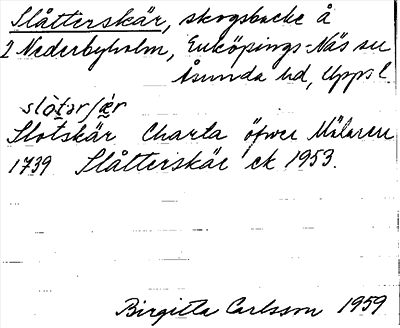 Slåtterskär, skogsbacke å
2 Nederbyholm, Enköpings-Näs sn
Åsunda hd, Uppsl.
slòtərʃæ̀r
Slotskär Charta öfwer Mälaren
1739 Slåtterskär ek 1953.
Birgitta Carlsson 1959